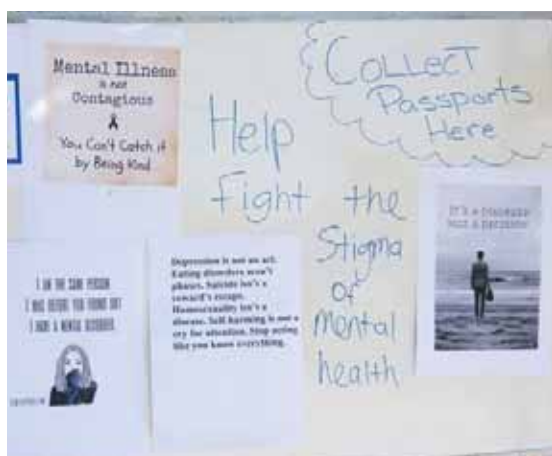 Mental Illness
is not
Contagious
You Can't Catch it
by Being Kind
COLLECT
Passports
Here
Help
Fight the
Stigma
of
mental
health
It's a disease
not a decision
I AM THE SAME PERSON
I WAS BEFORE YOU FOUND OUT
I HAVE A MENTAL DISORDER
Depression is not an act.
Eating disorders aren't
phases. Suicide isn't a
coward's escape.
Homosexuality isn't a
disease. Self harming is not a
cry for attention. Stop acting
like you know everything.